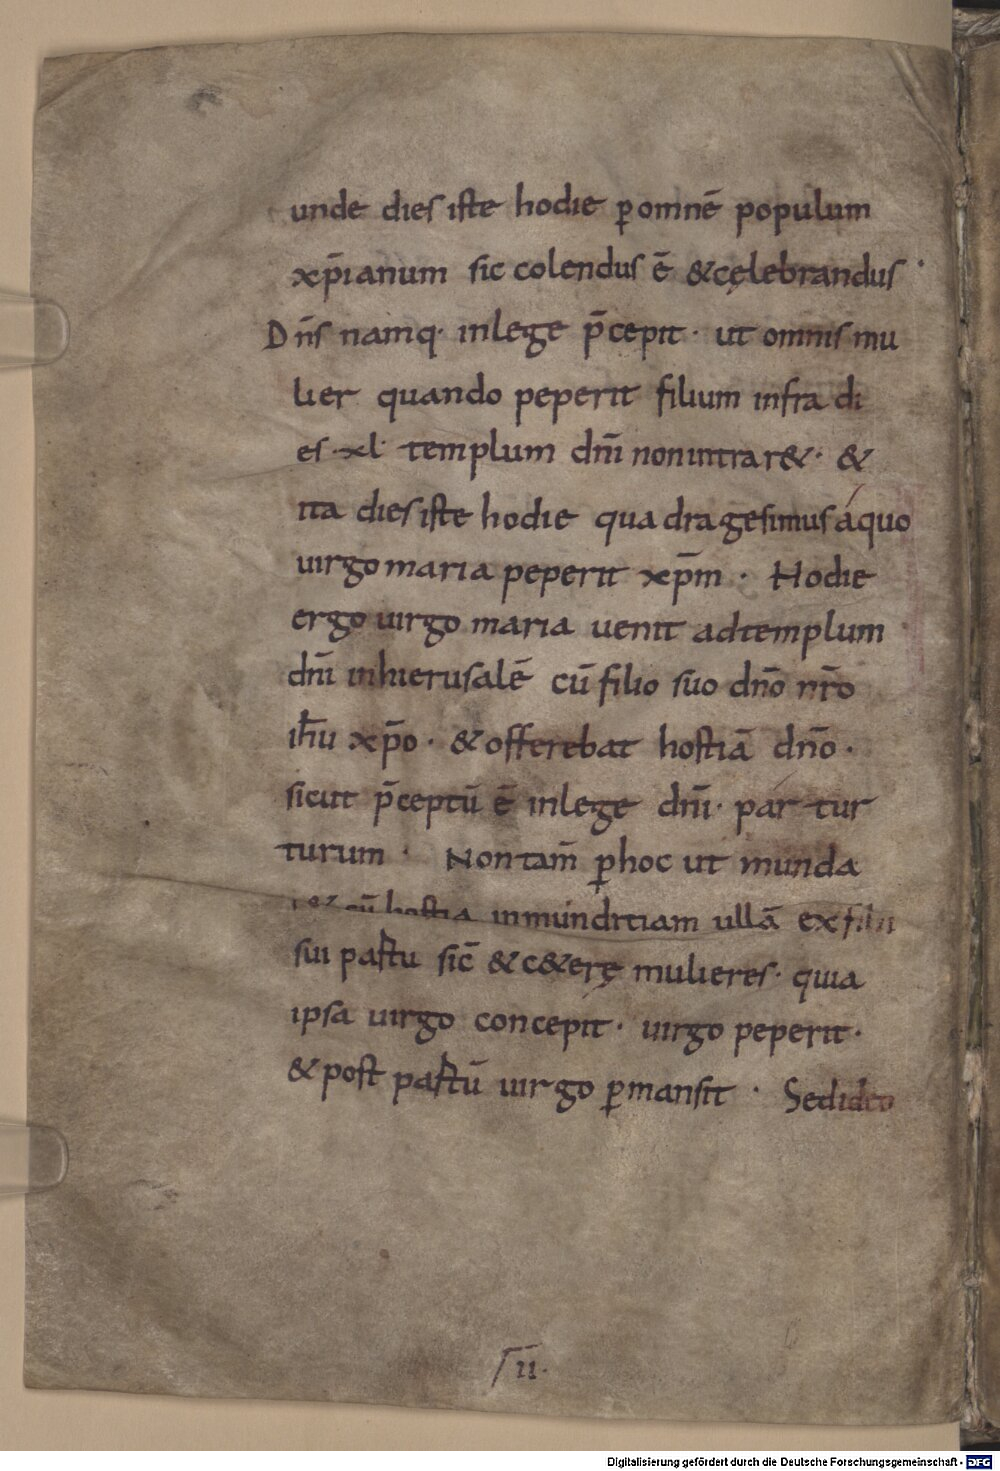 unde dies iste hodie ꝑ omnē populum
xp̄ianum sic colendus ē &cęlebrandus ·
Dn̄s namq· inlege p̄cepit · ut omnis mu
lier quando peperit filium infra di
es ·xl· templum dn̄i nonintrar& · &
ita dies iste hodie quadragesimus áquo
uirgo maria peperit xp̄m · Hodie
ergo uirgo maria uenit adtemplum
dn̄i inhierusalē cū filio suo dn̄o nr̄o
ih̄u xp̄o · &offerebat hostiā dn̄o ·
sicut p̄ceptū ē inlege dn̄i · par tur
turum · Non tam̄ ꝑhoc ut munda
r& cū hostia inmunditiam ullā ex filii
sui partu sic̄ &c&erę mulieres · quia
ipsa uirgo concepit · uirgo peperit ·
&post partū uirgo ꝑmansit · Sedideo
II·
Digitalisierung gefördert durch die Deutsche Forschungsgemeinschaft - DFG